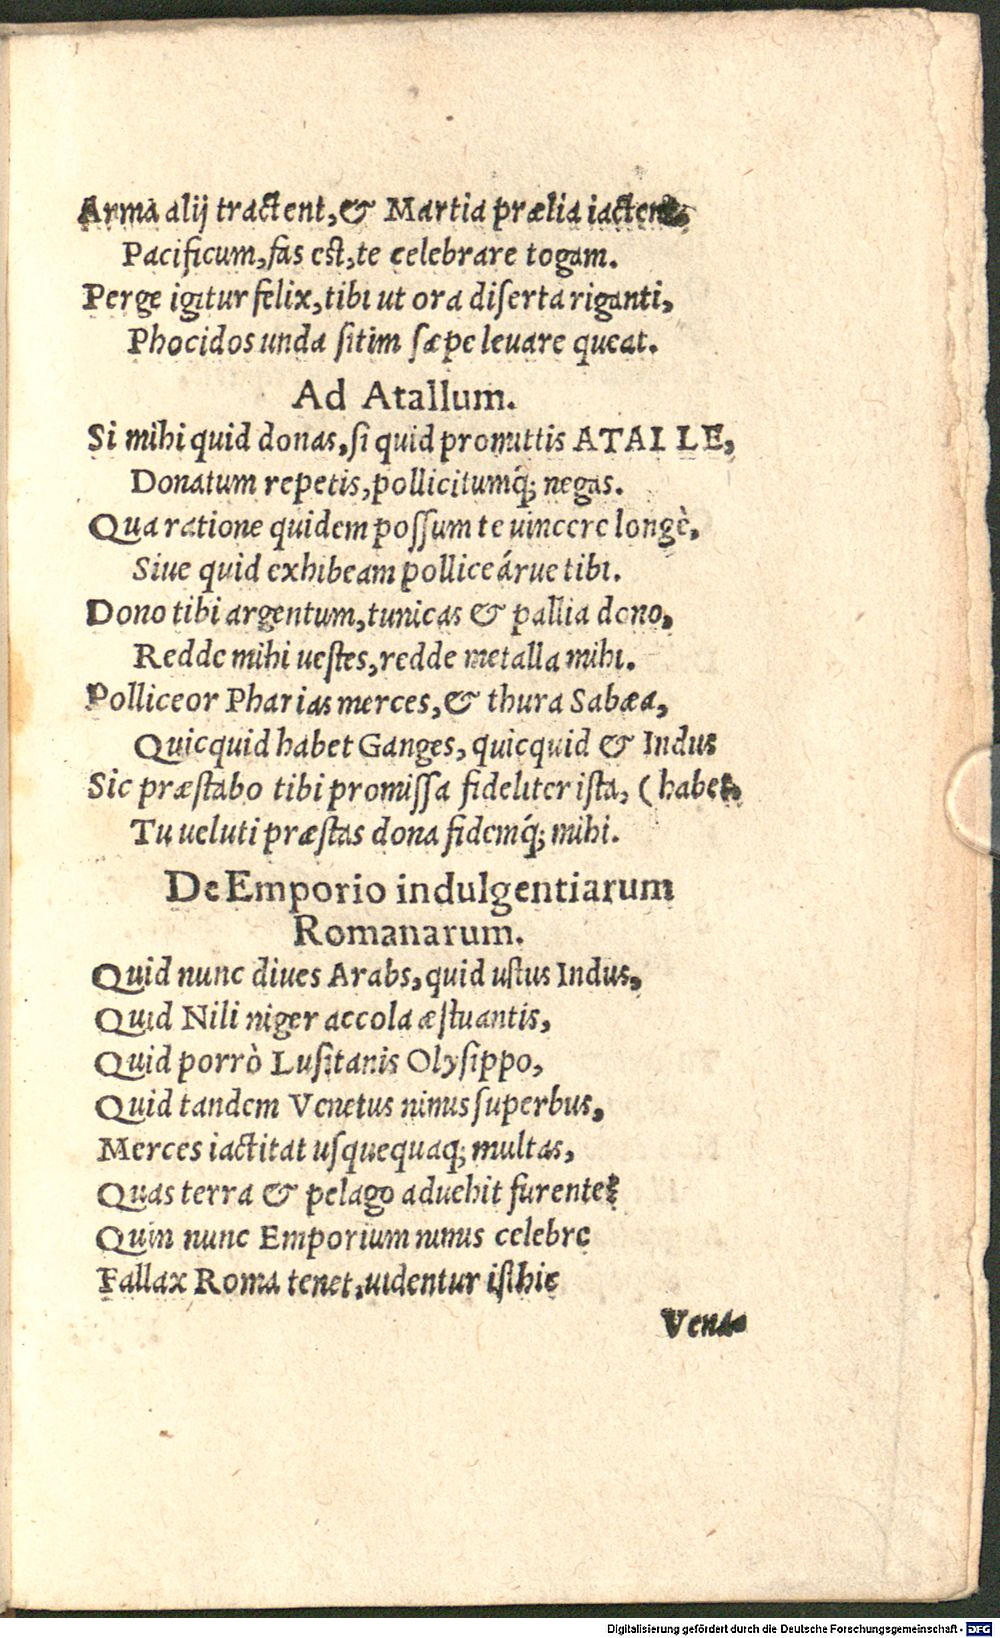 Arma alij tractent, & Martia prælia iactent.
Pacificum, fas est, te celebrare togam.
Perge igitur felix, tibi ut ora diserta riganti,
Phocidos unda sitim sæpe leuare queat.
Ad Atallum.
Si mihi quid donas, si quid promittis ATALLE,
Donatum repetis, pollicitumq́; negas.
Qua ratione quidem possum te uincere longè,
Siue quid exhibeam polliceárue tibi.
Dono tibi argentum, tunicas & pallia dono,
Redde mihi uestes, redde metalla mihi.
Polliceor Pharias merces, & thura Sabæa,
Quicquid habet Ganges, quicquid & Indus
Sic præstabo tibi promissa fideliter ista, (habet.
Tu ueluti præstas dona fidemq́; mihi.
De Emporio indulgentiarum
Romanarum.
Quid nunc diues Arabs, quid ustus Indus,
Quid Nili niger accola æstuantis,
Quid porrò Lusitanis Olysippo,
Quid tandem Venetus nimus superbus,
Merces iactitat usquequaq; multas,
Quas terra & pelago aduehit furente?
Quin nunc Emporium nimus celebre
Fallax Roma tenet, uidentur isthic
Vena-
Digitalisierung gefördert durch die Deutsche Forschungsgemeinschaft - DFG